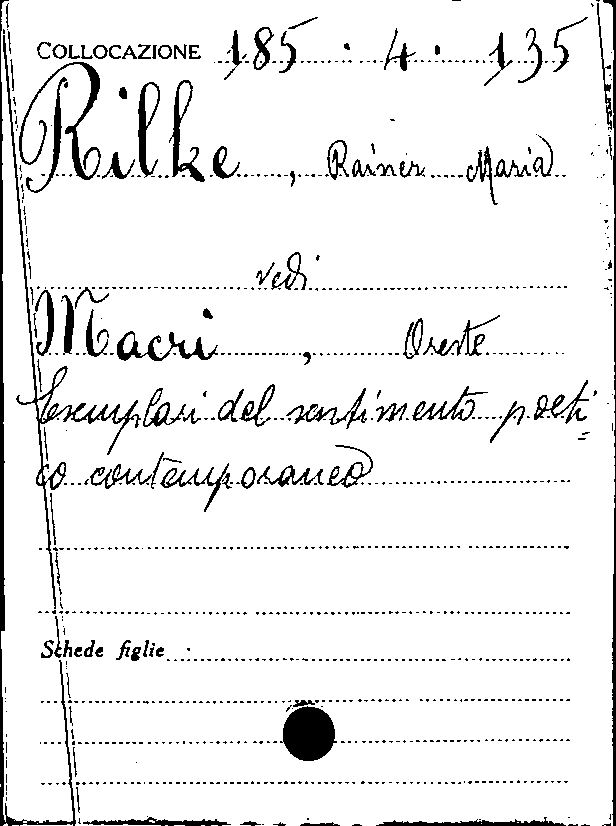 COLLOCAZIONE 185 · 4 · 135
Rilke, Rainer Maria
vedi
Macri, Oreste
Esemplari del sentimento poeti=
co contemporaneo
Schede figlie